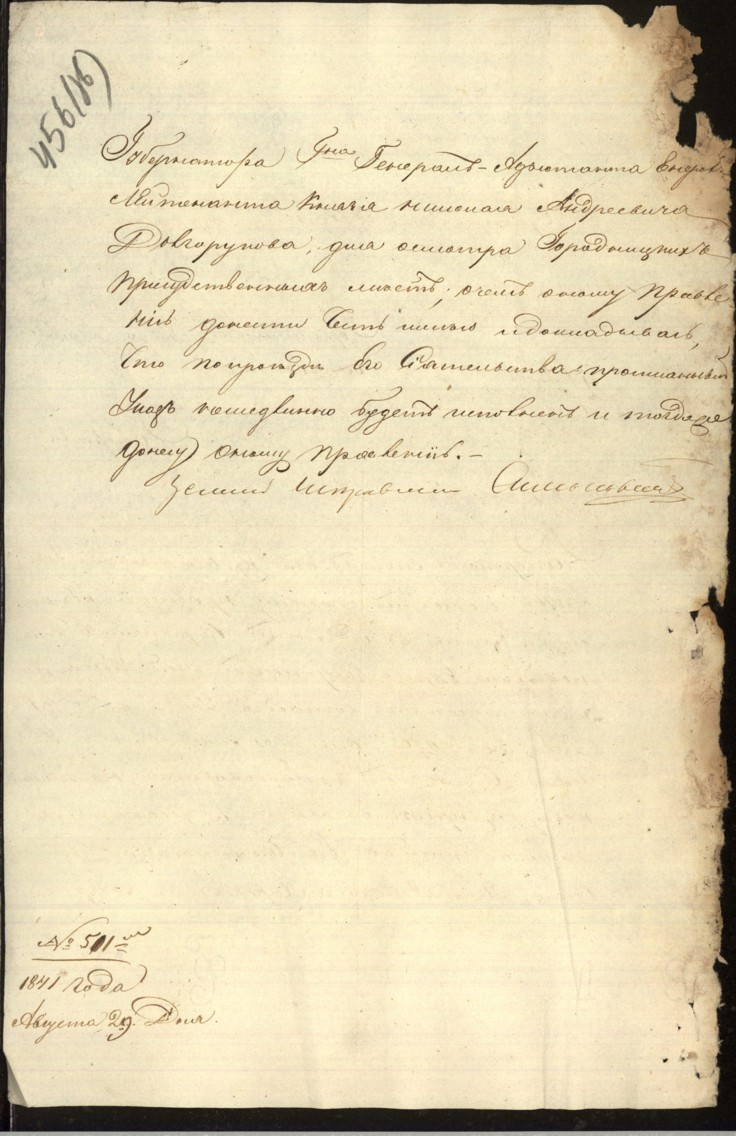 456(об)
Губернатора Гна Генералъ-Адъютанта Генералъ
Лейтенанта Князя Николая Андреевича
Долгорукова, для осмотра Городницкихъ
присудственныхъ мѣстъ; очемъ оному Правле
нію донести честь имѣю идокладывать,
Что попроездѣ Его Сіятельства, прописанный
Указъ немедлѣнно будетъ исполненъ и тогда же
донесу оному правленію. —
Земскій Исправникъ
№ 501
1841 года
Августа 29. Дня.